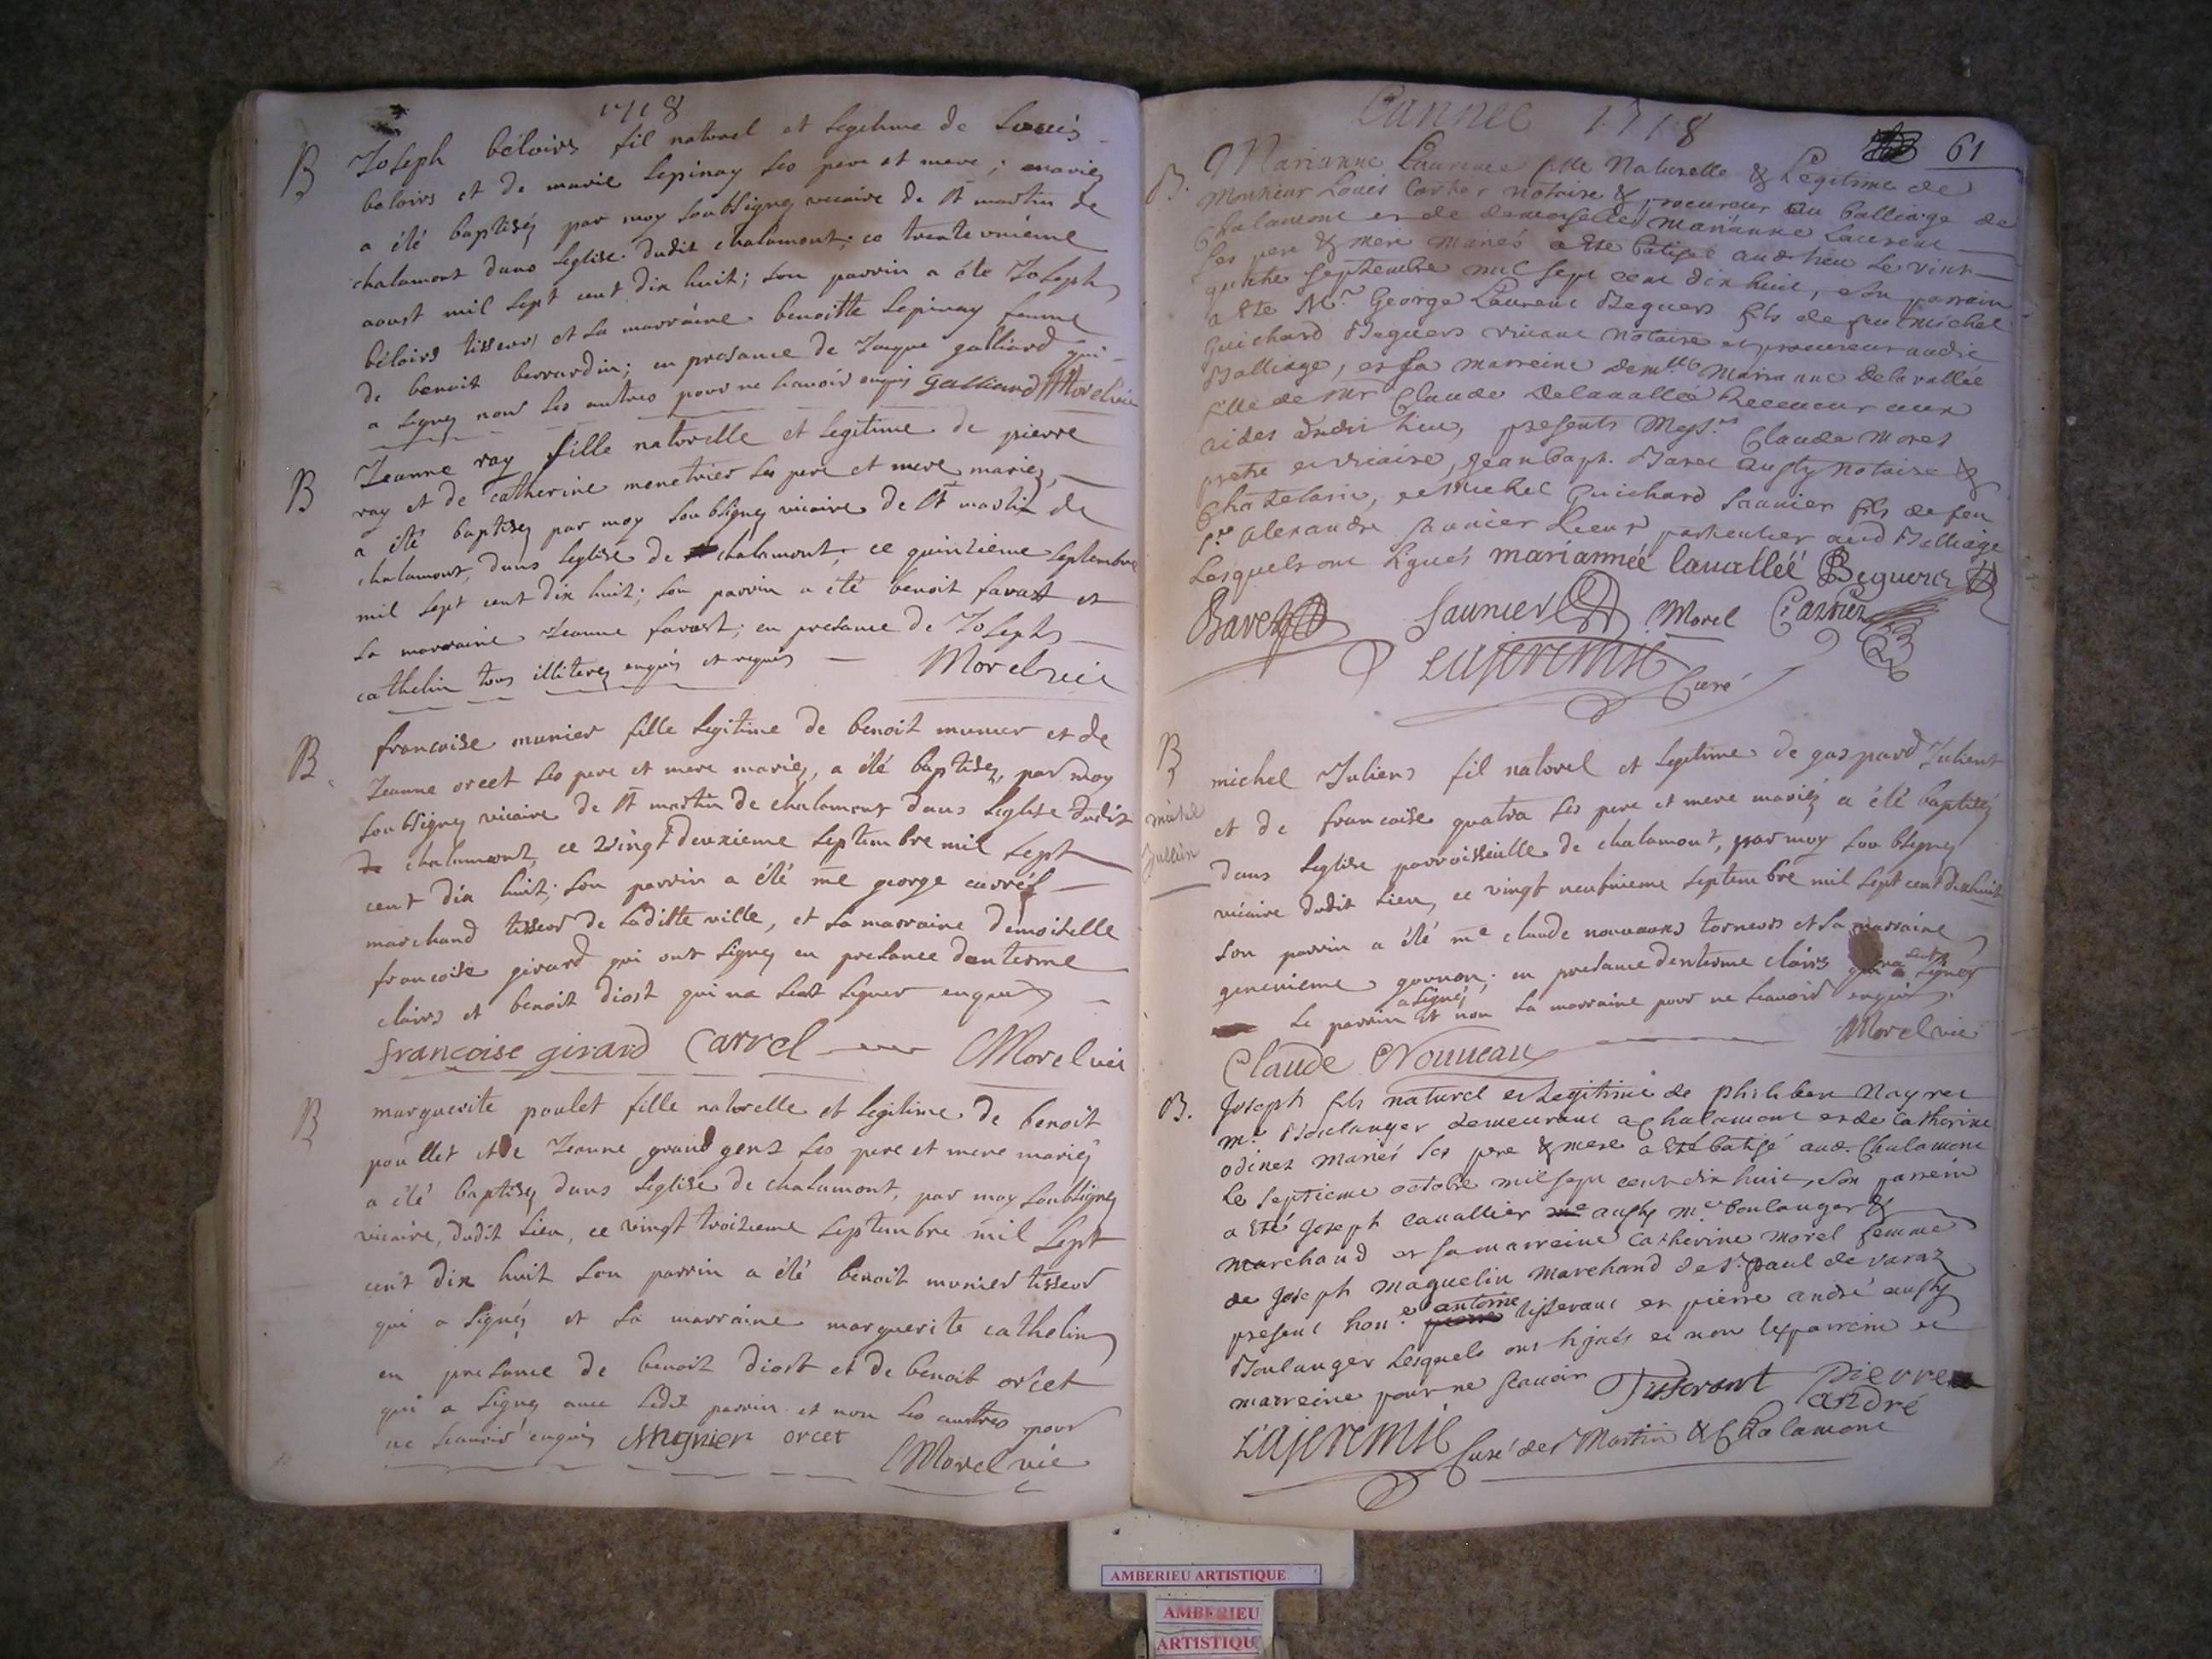 1718
B Joseph béloivs fil natorel et legetime de Louis
beloivs et de marie Lepinay ses pere et mere; mariez
a été baptisez par moy soubsigney vicaire de St martin de
chalamont dans leglise dudit chalamont; ce trente unième
aoust mil sept cent dix huit; son parrin a été Joseph
béloivs tisseurs et sa marraine benoitte Lepinay femme
de benoit berrardin; en presance de Jaque galliard qui
a signez non les autres pour ne scavoir enquis galliard Morel vic
B Jeanne ray fille natorelle et legetime de pierre
ray et de catherine menetrier ses pere et mere mariez,
a été baptisez par moy soubsigney vicaire de St martin de
chalamont, dans leglise de chalamont, ce quinzieme septembre
mil sept cent dix huit; son parrin a été benoit favast et
sa marraine Jeanne favast; en presance de Joseph
cathelin tous illiterez enquis et requis Morel vic
B francoise munier fille legitime de benoit munier et de
Jeanne orcet ses pere et mere mariez, a été baptisez, par moy
soubsigney vicaire de St martin de chalamont dans leglise dudit
de chalamont, ce vingt deuxieme septembre mil sept
cent dix huit; son parrin a été me george carrel
marchand tisseur de laditte ville, et sa marraine demoiselle
francoise girard qui ont signez en presance dentesme
claivs et benoit diost qui na scet signer enquis
francoise girard Carrel Morel vic
B marguerite poulet fille natorelle et legitime de benoit
poullet et de Jeanne grand genz ses pere et mere mariez
a été baptisez dans leglise de chalamont, par moy soubsignez
vicaire, dudit lieu, ce vingt troizieme septembre mil sept
cent dix huit son parrin a été benoit munier tisseur
qui a signéz et sa marraine marguerite cathelin
en presance de benoit diost et de benoit orcet
qui a signez avec ledit parrin et non les autres pour
ne scavoir enquis Mugnier orcet Morel vic
Lannee 1718
61
B. Marianne Laurence fille Naturelle & Legitime de
Monsieur Louis Carrier notaire & procureur au balliage de
Chalamont et de demoiselle Marianne Laurent
ses pere & mere mariés a Eté batisée aud. lieu le vint
quatre septembre mil sept cent dix huit, son parrain
a Eté Mr. George Laurent Beguers fils de feu Michel
Guichard Beguers vivant notaire et procureur audit
Balliage, et sa marreine Demlle Marianne Delavallée
fille de Mr Claude Delavallée Receveur aux
aides dudit lieu, presents Mess.rs Claude Morel
pretre et vicaire, Jean bapt. Baret aussy notaire &
Chatelain, et Michel Guichard Saunier fils de feu
Sr. Alexandre Saunier Lieut particulier aud Balliage
Lesquels ont signés mariannéé lavalléé Beguers
Baret Saunier Morel Carrier
Lajeremie Curé
B michel Juliens fil natorel et legitime de gaspard Julient
michel Jullien
et de francoise quatra ses pere et mere mariéz a été baptiséz
dans leglise parroissialle de chalamont, par moy soubsigney
vicaire dudit lieu, ce vingt neufvieme septembre mil sept cent dixhuit
son parrin a été me claude nouveaux torneurs et sa marraine
genevieme gounon; en presance dentesme claivs qui na scet signer
le parrin a signé et non la marraine pour ne scavoir enquis
Claude Nouueau Morel vic
B. Joseph fils naturel et Legitime de Philiben Nayret
mr. Boulanger demeurant a Chalamont et de Catherine
odinet mariés ses pere & mere a Eté batisé aud. Chalamont
Le septieme octobre mil sept cent dix huit, son parrein
a Eté Joseph cauallier me aussy me boulanger &
marchand et sa marreine Catherine Morel femme
de Joseph maguelin Marchand de St. paul de varax
present hon.e pierre antoine tisserant et pierre andré aussy
Boulanger Lesquels ont signés et non les parrein et
marreine pour ne scavoir Tisserant Pierre
andré
Lajeremie Curé de St Martin & Chalamont
AMBERIEU ARTISTIQUE
AMBERIEU
ARTISTIQU